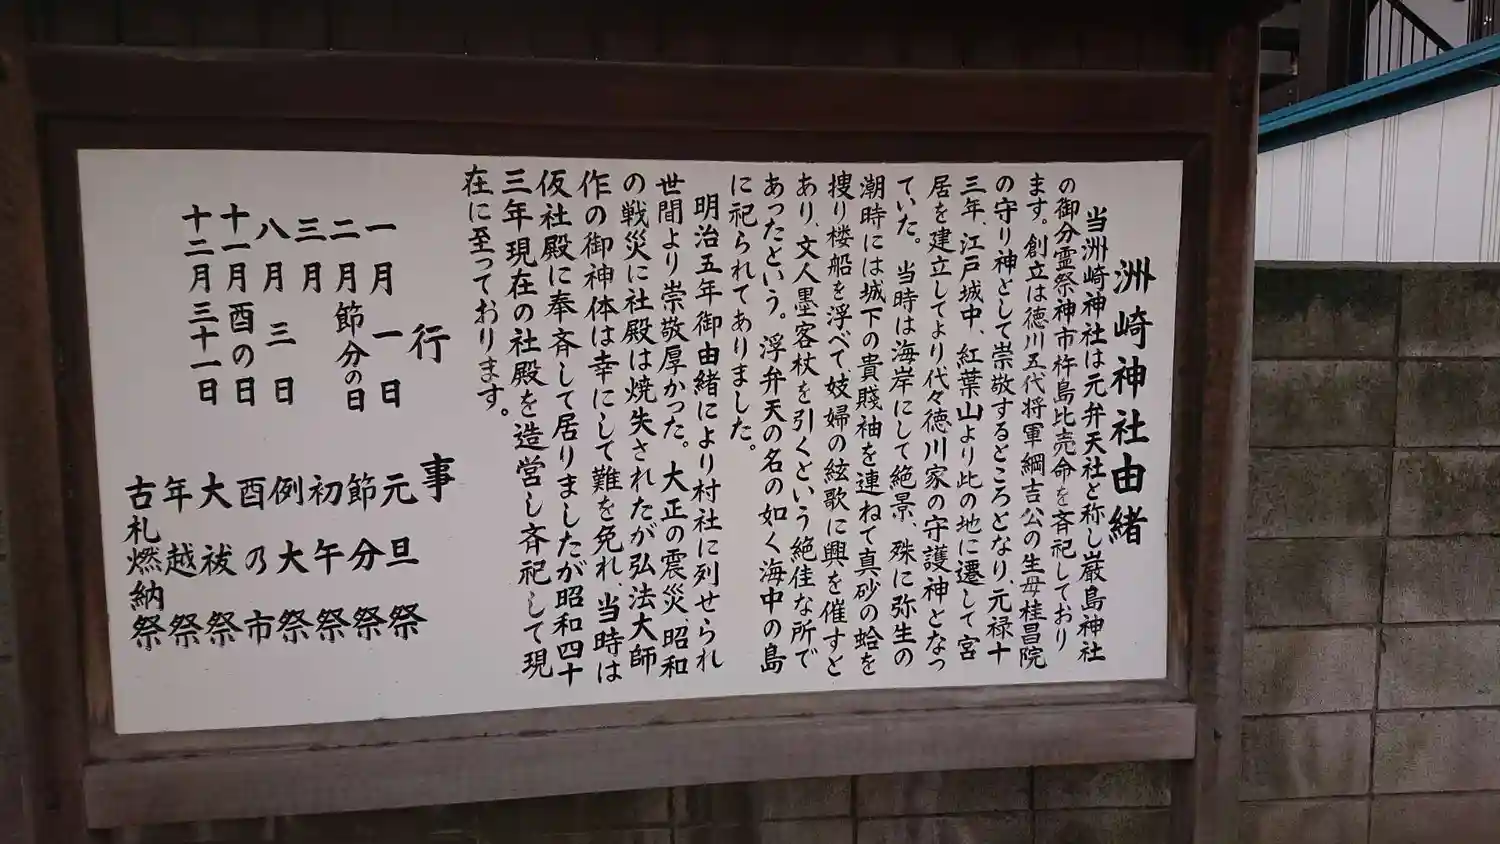 洲崎神社由緒
当洲崎神社は元弁天社と称し巌島神社
の御分霊祭神市杵島比売命を斉祀しており
ます。創立は徳川五代将軍綱吉公の生母桂昌院
の守り神として崇敬するところとなり、元禄十
三年、江戸城中、紅葉山より此の地に遷して宮
居を建立してより代々徳川家の守護神となっ
ていた。当時は海岸にして絶景、殊に弥生の
潮時には城下の貴賤袖を連ねて真砂の蛤を
捜り楼船を浮べて妓婦の絃歌に興を催すと
あり、文人墨客杖を引くという絶佳な所で
あったという。浮弁天の名の如く海中の島
に祀られてありました。
明治五年御由緒により村社に列せられ
世間より崇敬厚かった。大正の震災、昭和
の戦災に社殿は焼失されたが弘法大師
作の御神体は幸にして難を免れ、当時は
仮社殿に奉斉して居りましたが昭和四十
三年現在の社殿を造営し斉祀して現
在に至っております。
行事
一月一日 元旦祭
二月節分の日 節分祭
三月 初午祭
八月三日 例大祭
十一月酉の日 酉の市
十二月三十一日 大祓祭
年越祭
古札燃納祭